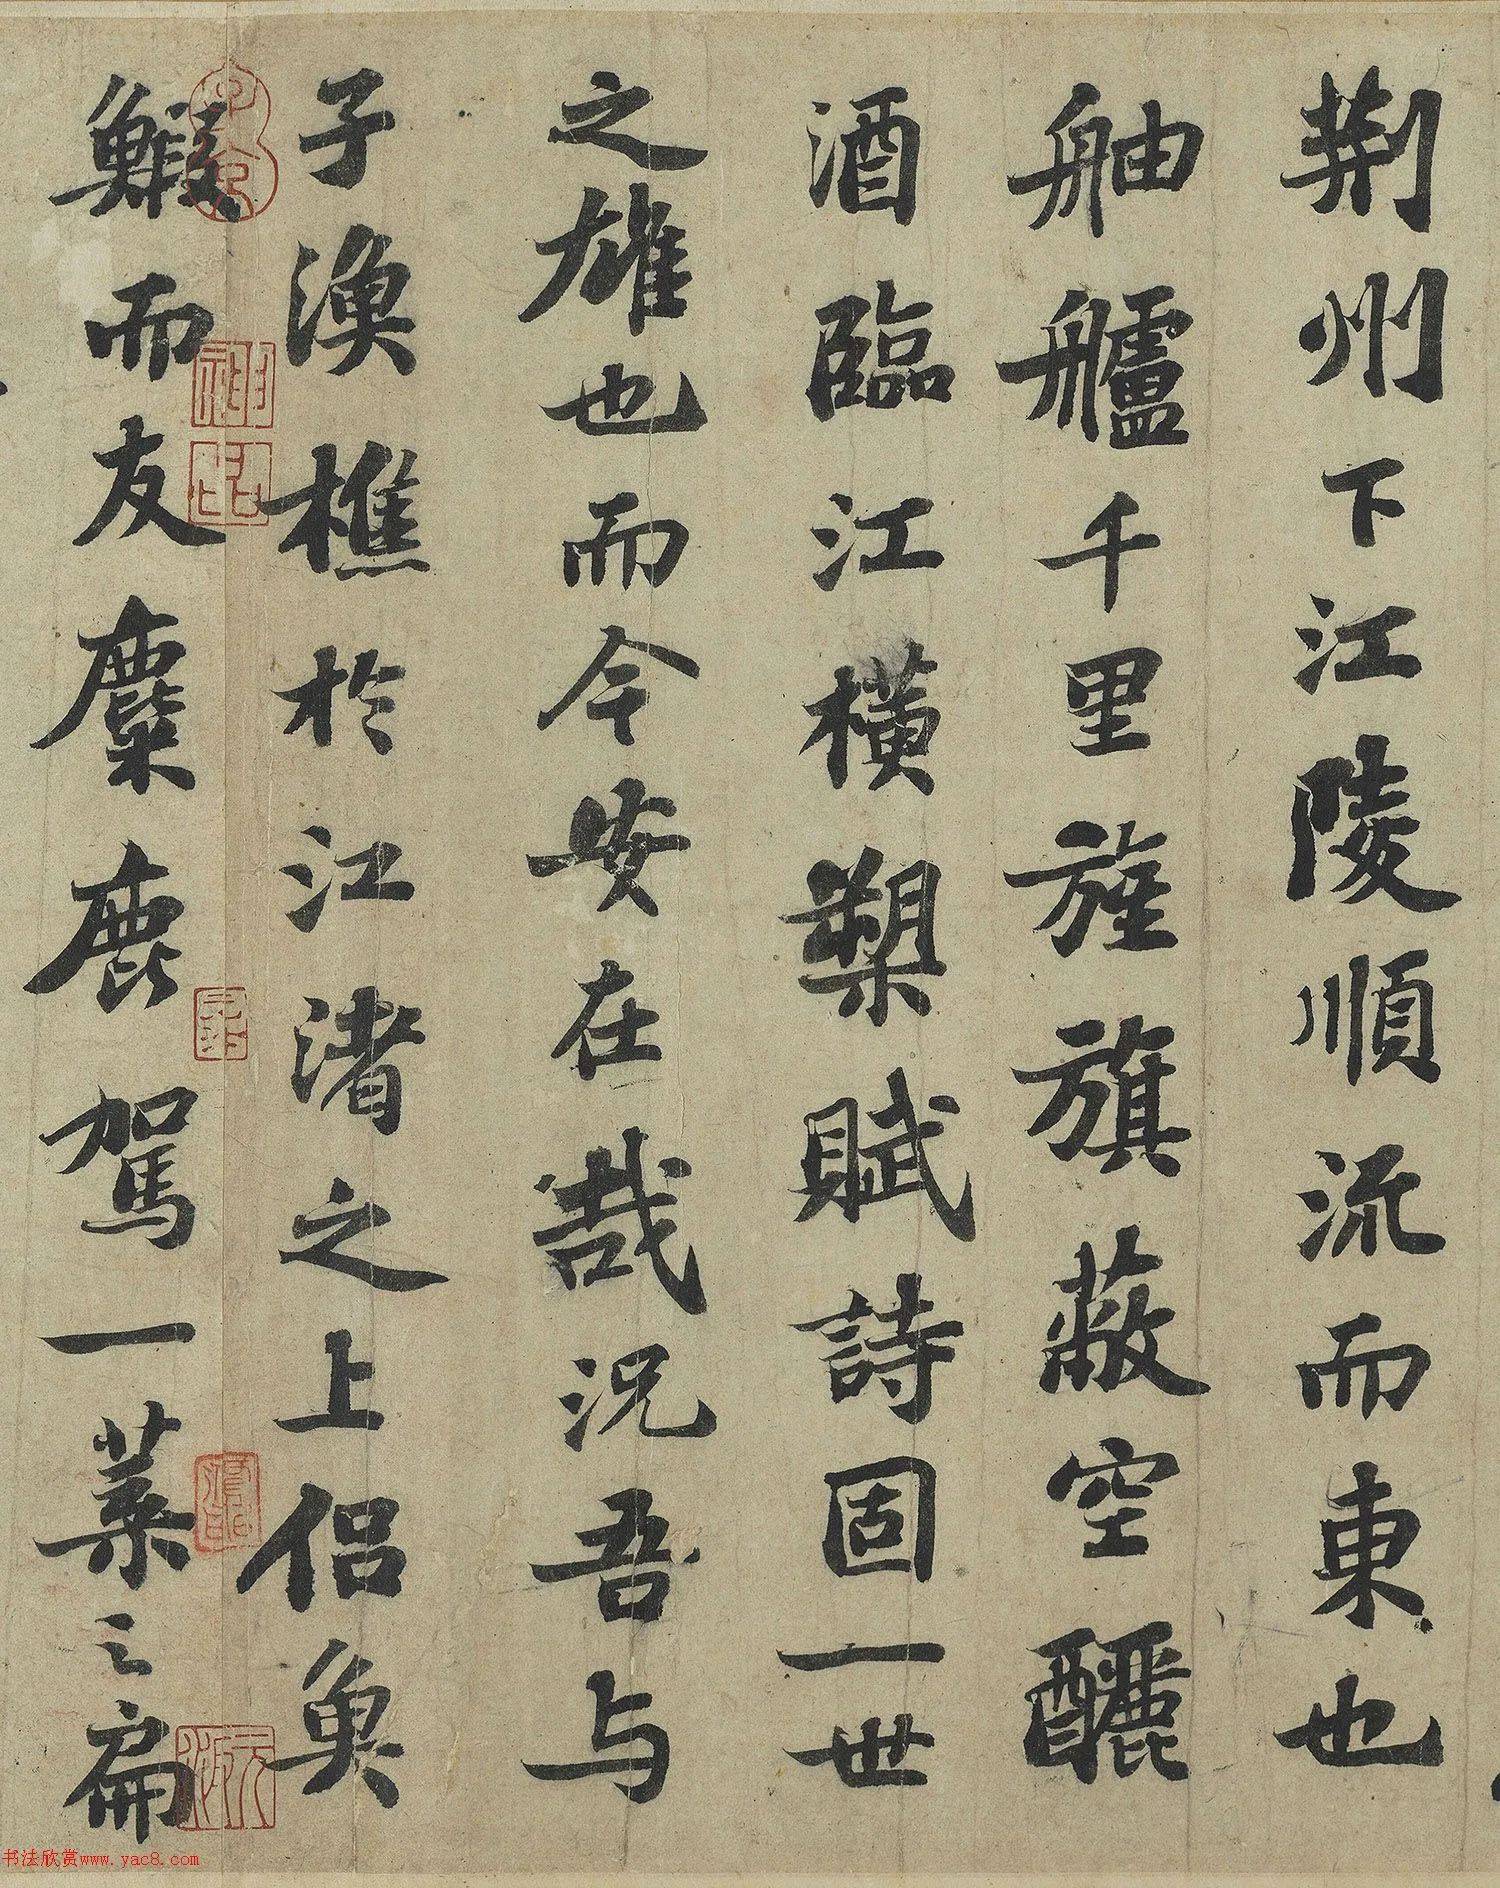 荆州下江陵順流而東也
舳艫千里旌旗蔽空釃
酒臨江橫槊賦詩固一世
之雄也而今安在哉況吾与
子漁樵於江渚之上侣魚
鰕而友麋鹿駕一葉之扁
书法欣赏www.yac8.com